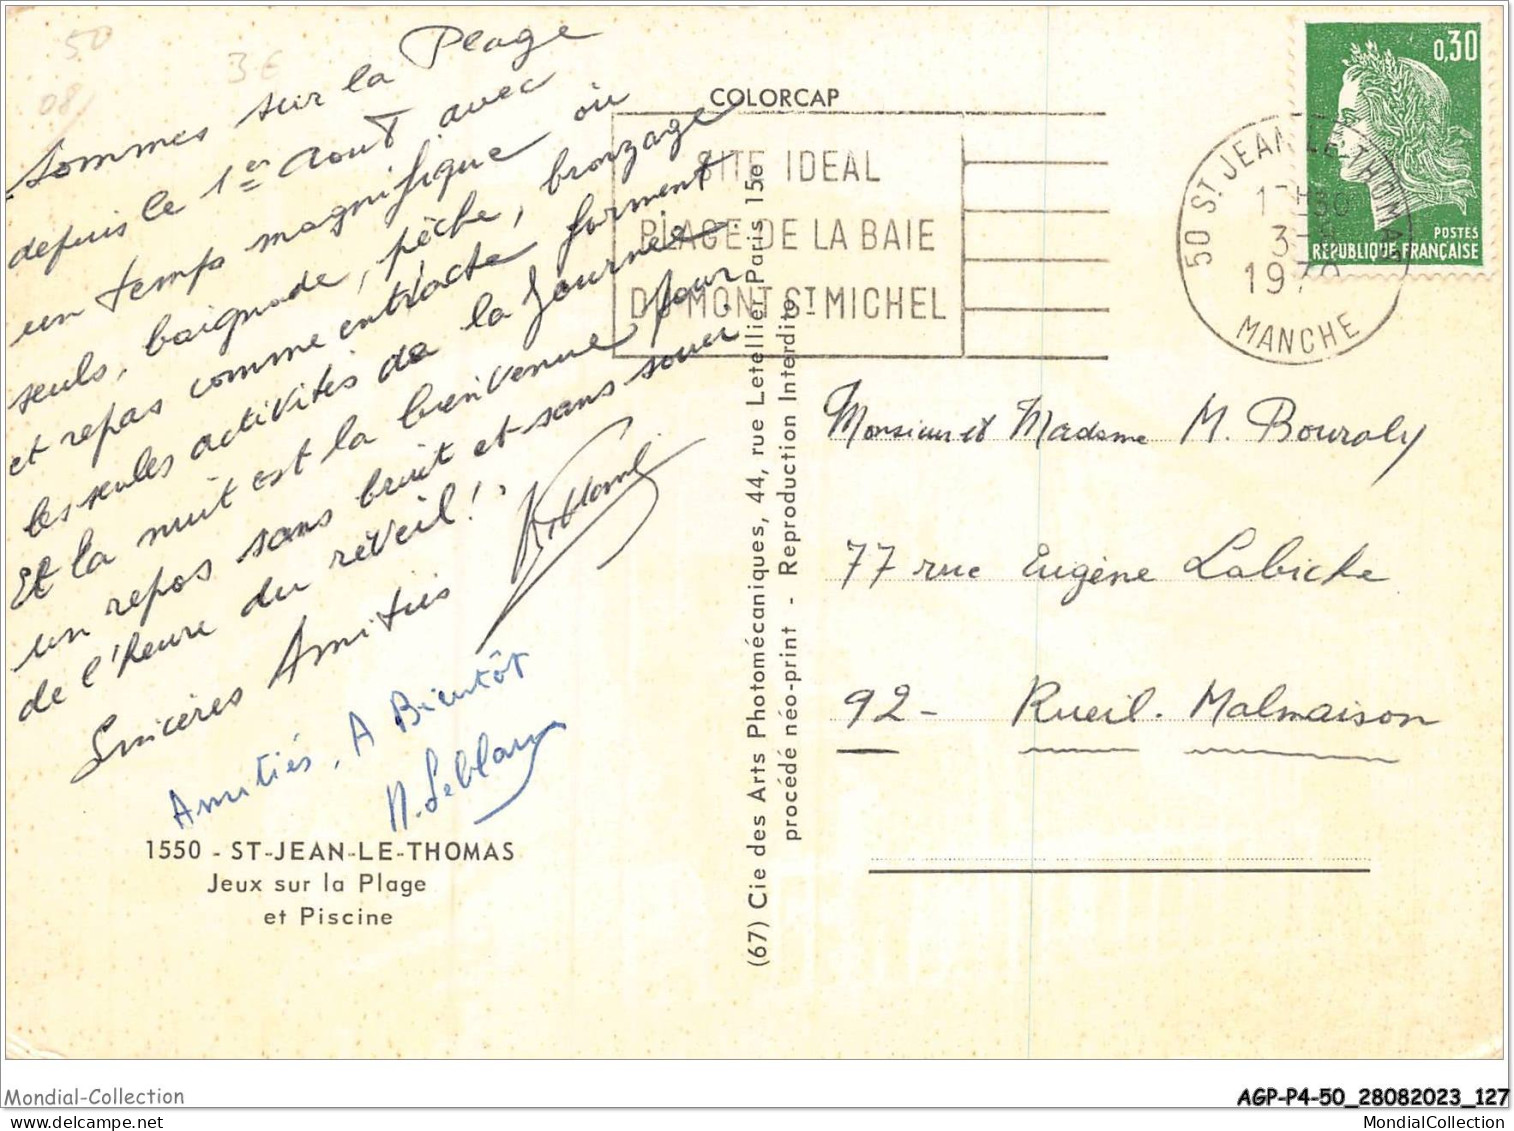 50
3€
08/
Sommes sur la Plage
depuis le 1er Aout avec
un temps magnifique où
seuls, baignade, pêche, bronzage
et repas comme entr'acte forment
les seules activités de la Journée.
Et la nuit est la bienvenue pour
un repos sans bruit et sans souci
de l'heure du réveil!.
Sincères Amitiés
Amitiés, A Bientôt
N. Leblanc
1550 - ST-JEAN-LE-THOMAS
Jeux sur la Plage
et Piscine
COLORCAP
SITE IDEAL
PLAGE DE LA BAIE
DU MONT ST MICHEL
(67) Cie des Arts Photomécaniques, 44, rue Letellier Paris 15e
procédé néo-print - Reproduction Interdite
50 ST JEAN LE THOMAS
3-8
1970
MANCHE
0,30
POSTES
REPUBLIQUE FRANÇAISE
Monsieur et Madame M. Bouraly
77 rue Eugène Labiche
92 - Rueil. Malmaison
Mondial-Collection
AGP-P4-50_28082023_127
MondialCollection